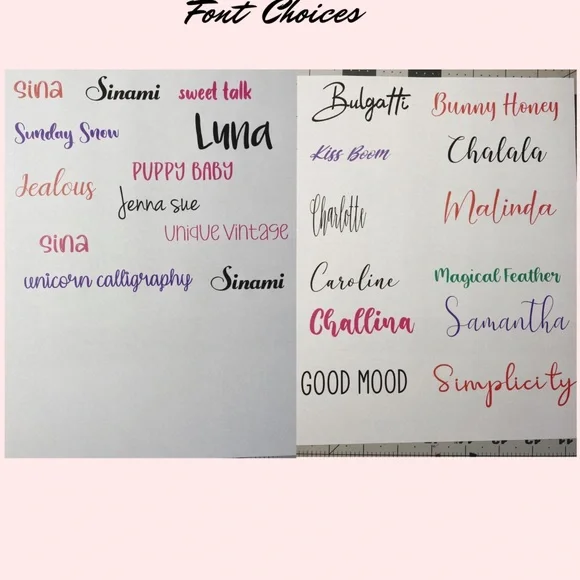 Font Choices
sina Sinami sweet talk
Sunday Snow Luna
Jealous PUPPY BABY
Jenna sue
unique vintage
sina
unicorn calligraphy Sinami
Bulgatti Bunny Honey
Kiss Boom Chalala
Charlotte Malinda
Caroline Magical Feather
Challina Samantha
GOOD MOOD Simplicity